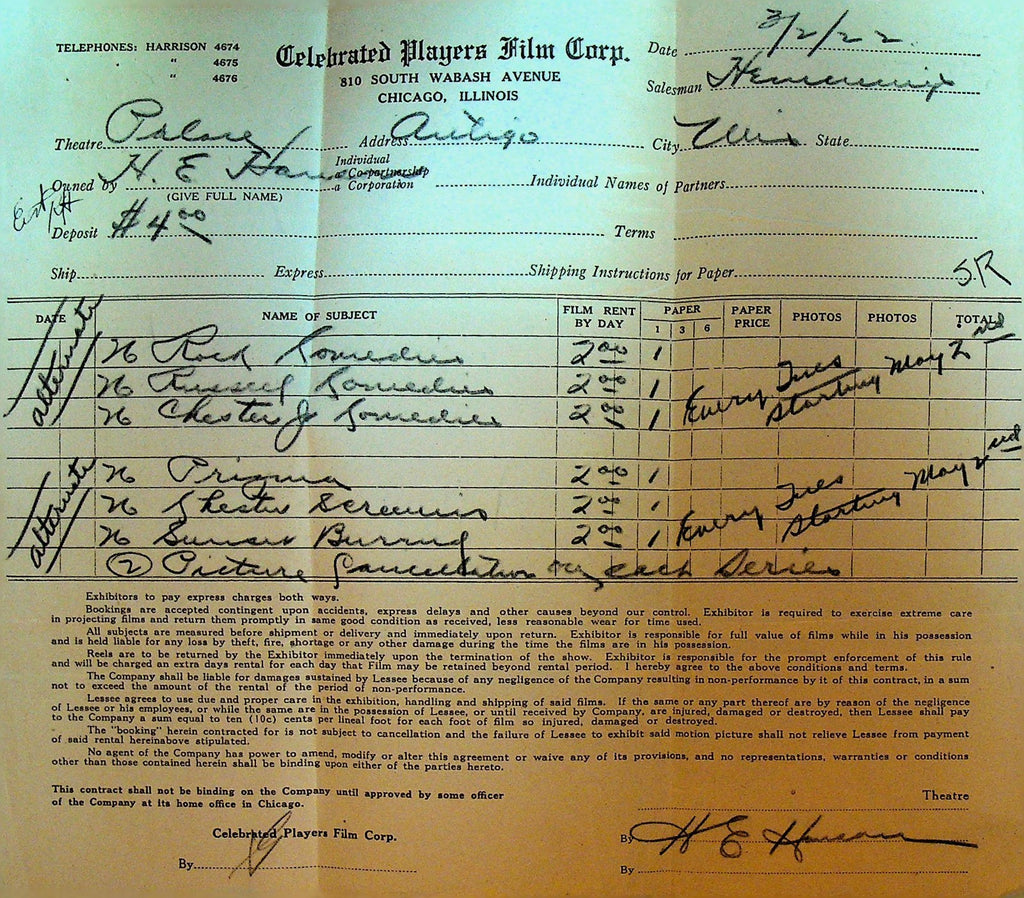 TELEPHONES: HARRISON 4674
" 4675
" 4676
Celebrated Players Film Corp.
810 SOUTH WABASH AVENUE
CHICAGO, ILLINOIS
Date 3/2/22
Salesman
Theatre Palace Address Antigo City Wis State
Owned by H. E. Hanson Individual Co-partnership a Corporation Individual Names of Partners
(GIVE FULL NAME)
Deposit $4.00 Terms
Ship Express Shipping Instructions for Paper SR
DATE NAME OF SUBJECT FILM RENT BY DAY PAPER 1 3 6 PAPER PRICE PHOTOS PHOTOS TOTAL
alternate
Rock Comedies 2.00 1
Russell Comedies 2.00 1
Chester Comedies 2.00 1
Every Tues starting May 2nd
alternate
Prizma 2.00 1
Chester Screenics 2.00 1
Sunset Burrud 2.00 1
Every Tues starting May 2nd
② Picture Cancellation on each Series
Exhibitors to pay express charges both ways.
Bookings are accepted contingent upon accidents, express delays and other causes beyond our control. Exhibitor is required to exercise extreme care
in projecting films and return them promptly in same good condition as received, less reasonable wear for time used.
All subjects are measured before shipment or delivery and immediately upon return. Exhibitor is responsible for full value of films while in his possession
and is held liable for any loss by theft, fire, shortage or any other damage during the time the films are in his possession.
Reels are to be returned by the Exhibitor immediately upon the termination of the show. Exhibitor is responsible for the prompt enforcement of this rule
and will be charged an extra days rental for each day that Film may be retained beyond rental period. I hereby agree to the above conditions and terms.
The Company shall be liable for damages sustained by Lessee because of any negligence of the Company resulting in non-performance by it of this contract, in a sum
not to exceed the amount of the rental of the period of non-performance.
Lessee agrees to use due and proper care in the exhibition, handling and shipping of said films. If the same or any part thereof are by reason of the negligence
of Lessee or his employees, or while the same are in the possession of Lessee, or until received by Company, are injured, damaged or destroyed, then Lessee shall pay
to the Company a sum equal to ten (10c) cents per lineal foot for each foot of film so injured, damaged or destroyed.
The "booking" herein contracted for is not subject to cancellation and the failure of Lessee to exhibit said motion picture shall not relieve Lessee from payment
of said rental hereinabove stipulated.
No agent of the Company has power to amend, modify or alter this agreement or waive any of its provisions, and no representations, warranties or conditions
other than those contained herein shall be binding upon either of the parties hereto.
This contract shall not be binding on the Company until approved by some officer
of the Company at its home office in Chicago.
Theatre
Celebrated Players Film Corp.
By H E Hanson
By
By